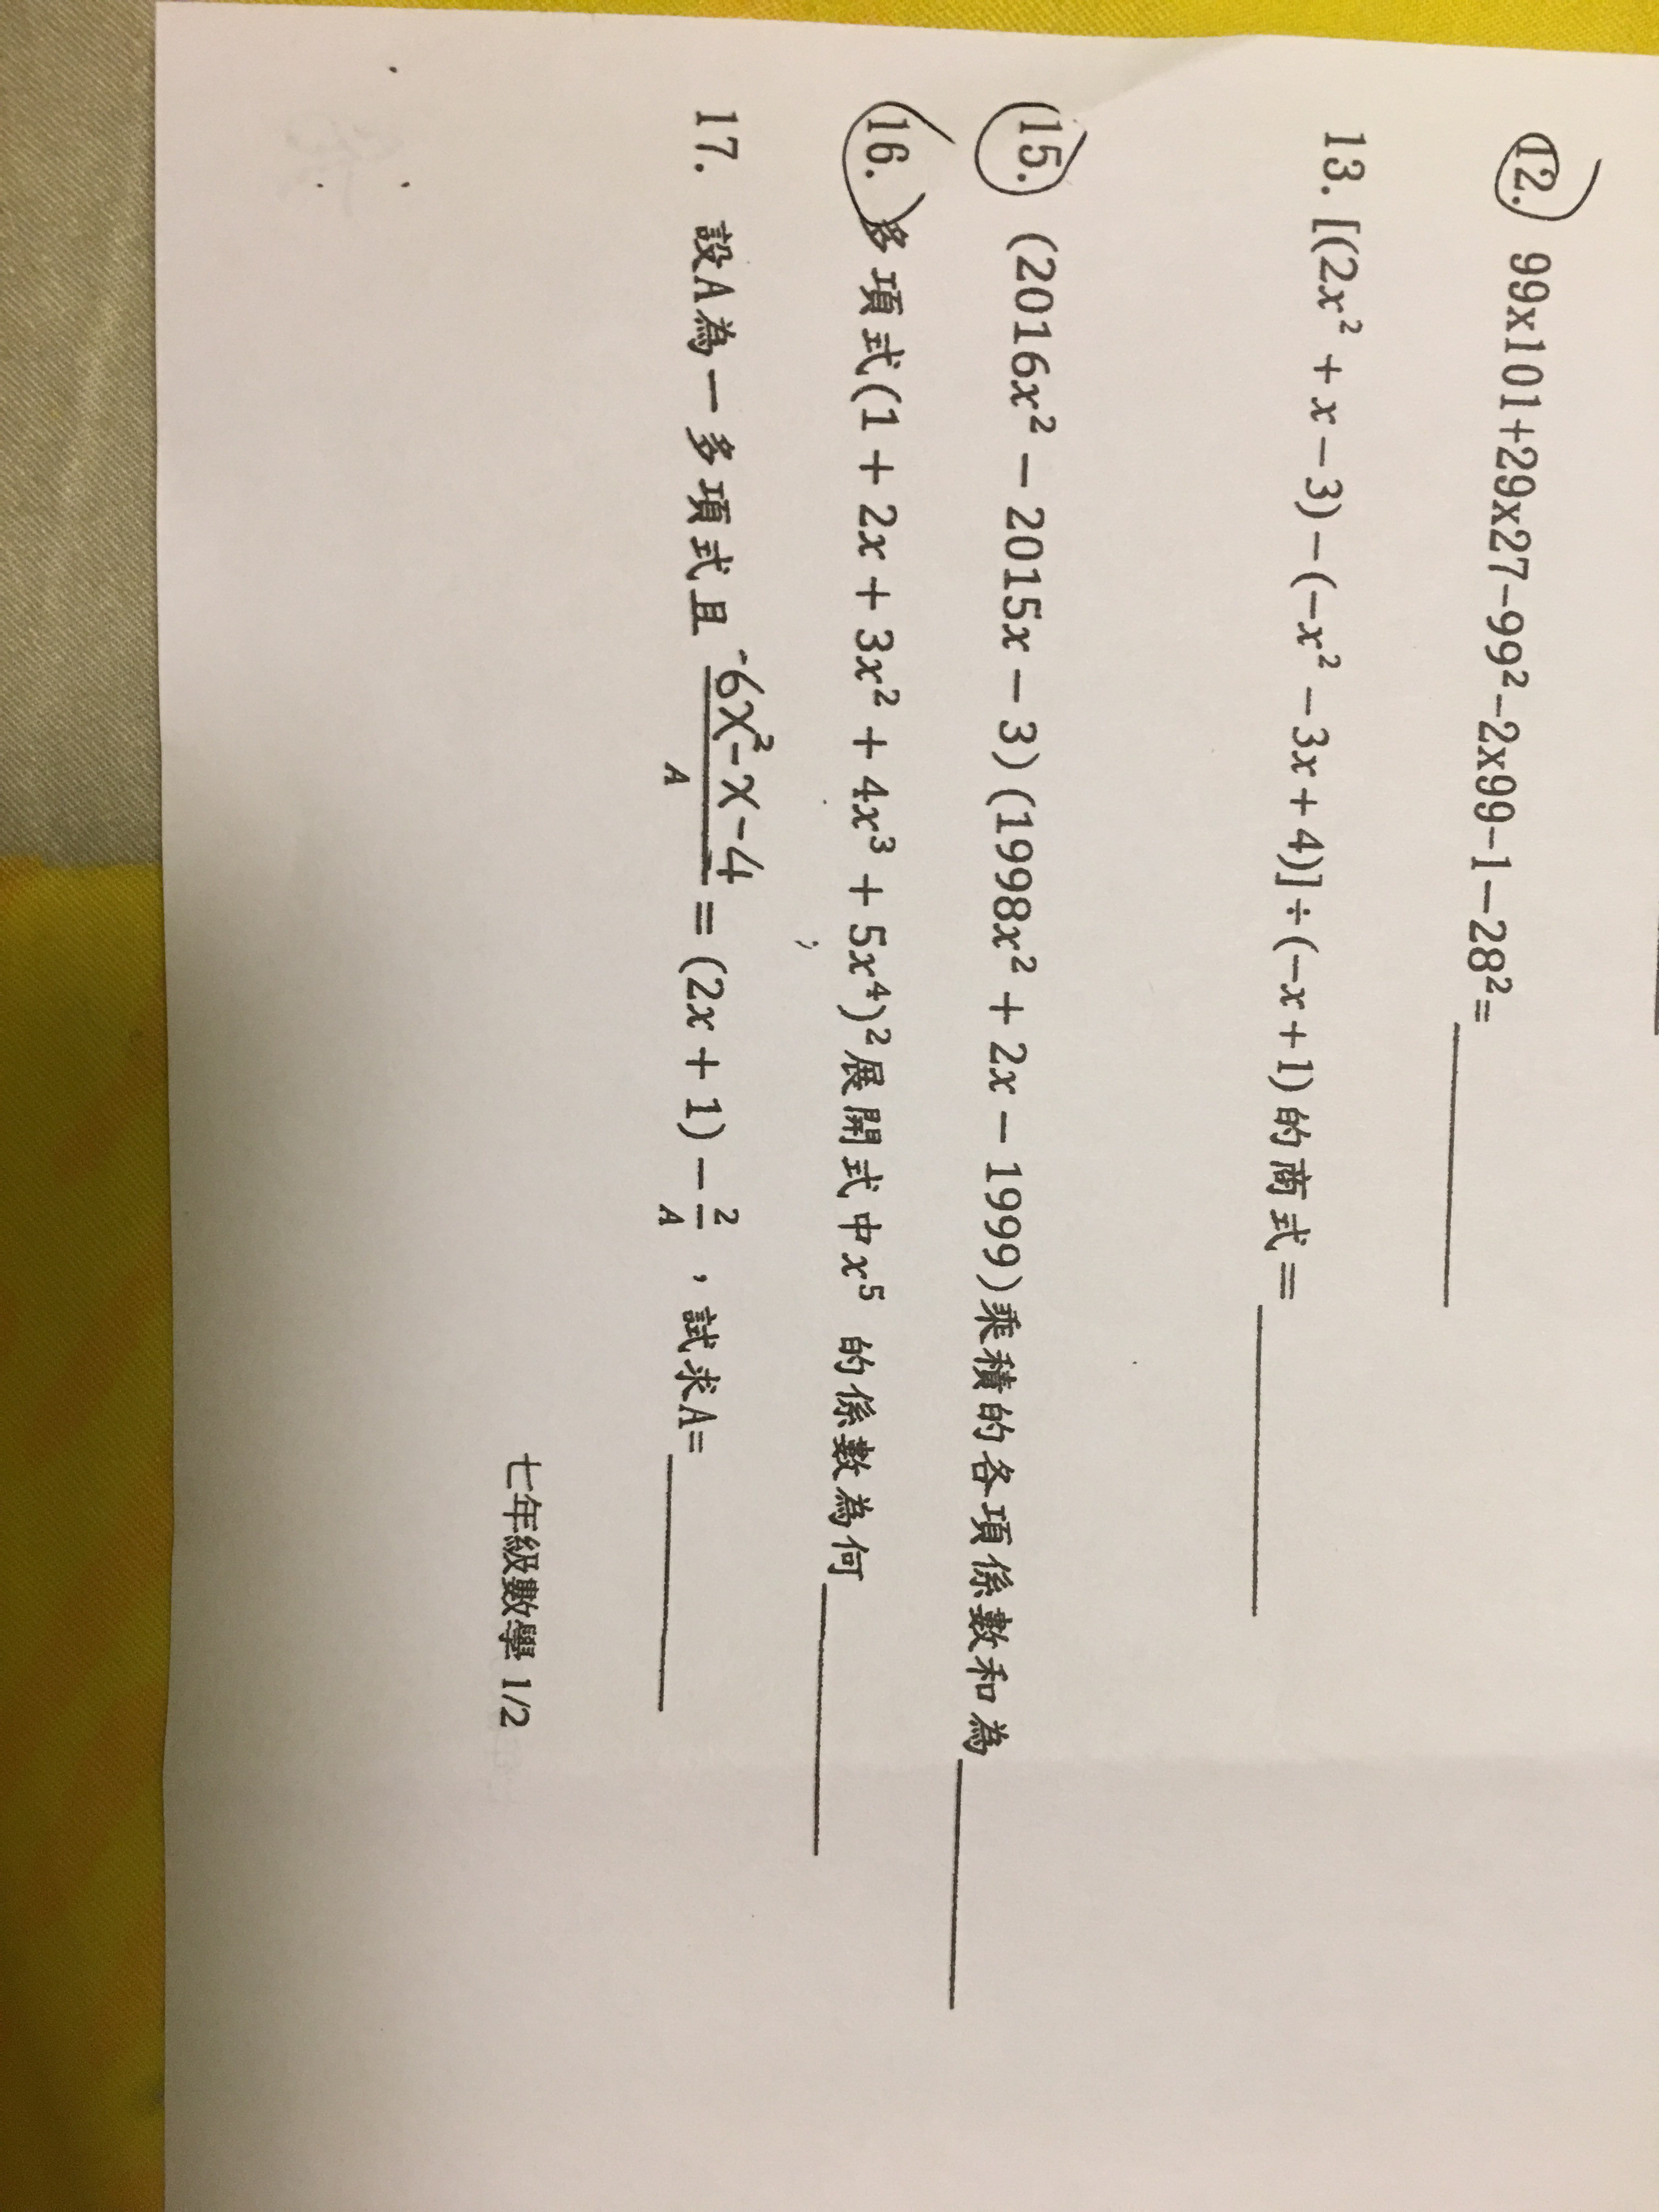 12. 99x101+29x27-99²-2x99-1-28²=
13. [(2x² + x - 3) - (-x² - 3x + 4)] ÷ (-x + 1) 的商式 =
15. (2016x² - 2015x - 3)(1998x² + 2x - 1999)乘積的各項係數和為
16. 多項式(1 + 2x + 3x² + 4x³ + 5x⁴)²展開式中x⁵ 的係數為何
17. 設A為一多項式且 -6x²-x-4/A = (2x + 1) - 2/A ，試求A=
七年級數學 1/2